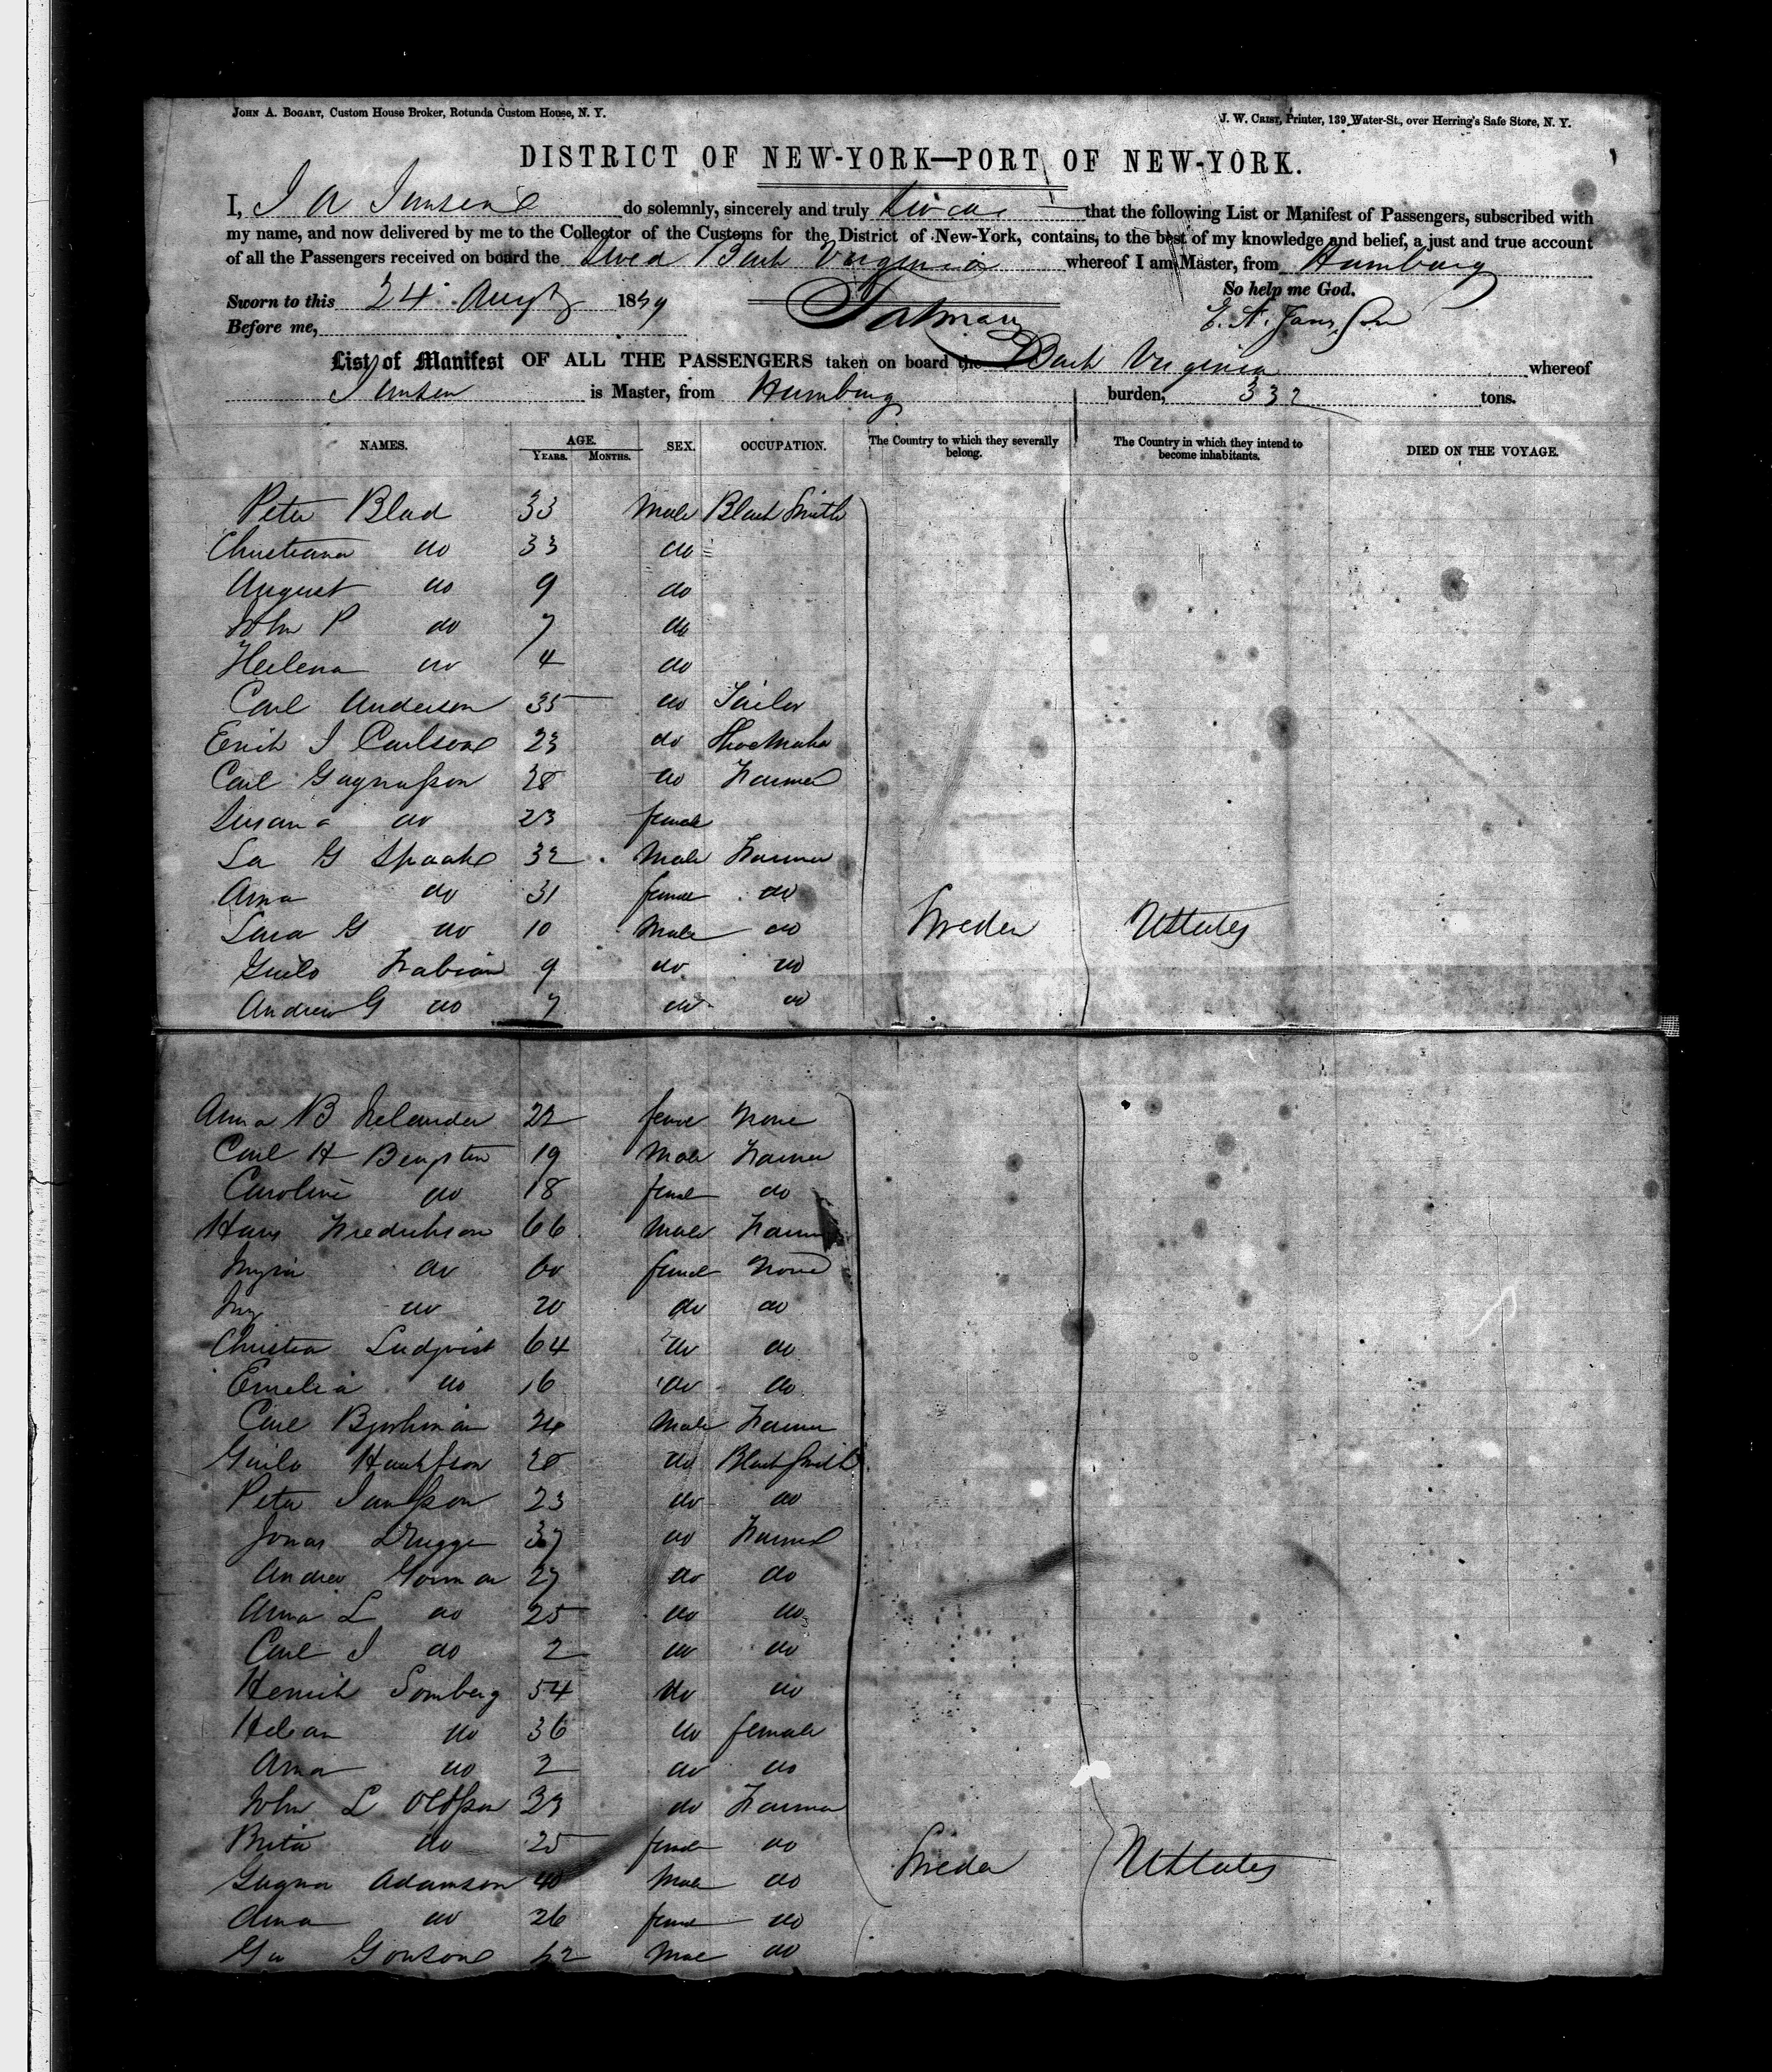 JOHN A. BOGART, Custom House Broker, Rotunda Custom House, N. Y.
J. W. CRIST, Printer, 139 Water-St., over Herring's Safe Store, N. Y.
DISTRICT OF NEW-YORK—PORT OF NEW-YORK.
I, J A Jansen do solemnly, sincerely and truly that the following List or Manifest of Passengers, subscribed with
my name, and now delivered by me to the Collector of the Customs for the District of New-York, contains, to the best of my knowledge and belief, a just and true account
of all the Passengers received on board the Swed Bark Virginia whereof I am Master, from Hamburg
So help me God.
Sworn to this 24 Augt 1859
Before me,
List of Manifest OF ALL THE PASSENGERS taken on board the Bark Virginia whereof
Jansen is Master, from Hamburg burden, 332 tons.
NAMES. AGE. SEX. OCCUPATION. The Country to which they severally belong. The Country in which they intend to become inhabitants. DIED ON THE VOYAGE.
YEARS. MONTHS.
Peter Blad 33 Male Black Smith
Christiana do 33 do
August do 9 do
John P do 7 do
Helena do 4 do
Carl Anderson 35 do Tailor
Erick J Carlsone 23 do Shoe Maker
Carl 28 do Farmer
Susana do 23 female
La G Spaake 32 Male Farmer
Anna do 31 female do
Lara G do 10 Male do Sweden UStates
Fabian 9 do do
Andrew G do 7 do do
Anna B 22 female None
Carl H Bengsten 19 Male Farmer
Caroline do 18 female do
Hans Fredrikson 66 Male Farmer
do 60 female None
do 20 do do
Christia Ludqvist 64 do do
Emelia do 16 do do
Carl 24 Male Farmer
28 do Black Smith
Peter 23 do do
Jonas 37 do Farmer
Andrew Gorman 27 do do
Anna L do 25 do do
Carl J do 2 do do
Henrik Somberg 54 do do
Helean do 36 do female
Anna do 2 do do
John L Olofson 33 do Farmer
Brita do 25 female do
Adamson 40 Male do Sweden UStates
Anna do 26 female do
Male do